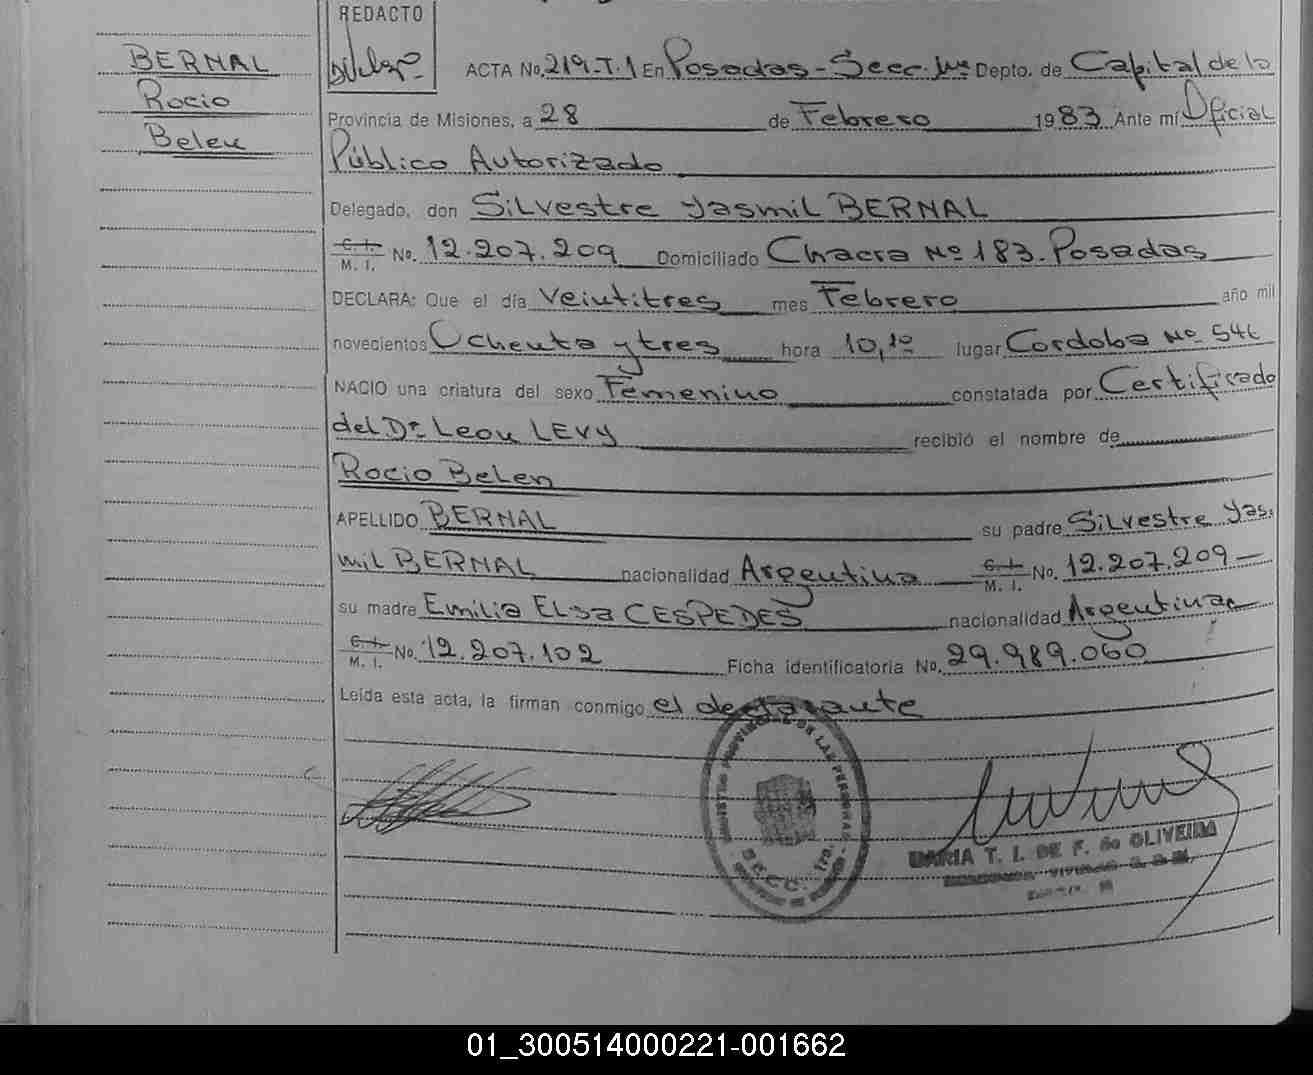 REDACTO
BERNAL
Rocio
Belen
ACTA No. 219-T.1 En Posadas-Secc. 1ra Depto. de Capital de la
Provincia de Misiones, a 28 de Febrero 1983 Ante mí Oficial
Público Autorizado
Delegado, don Silvestre Yasmil BERNAL
C. I. M. I. No. 12.207.209 Domiciliado Chacra Nº 183. Posadas
DECLARA: Que el día Veintitres mes Febrero año mil
novecientos Ochenta y tres hora 10,10 lugar Cordoba Nº 546
NACIO una criatura del sexo Femenino constatada por Certificado
del Dr. Leon LEVY recibió el nombre de
Rocio Belen
APELLIDO BERNAL su padre Silvestre Yas-
mil BERNAL nacionalidad Argentina C. I. M. I. No. 12.207.209
su madre Emilia Elsa CESPEDES nacionalidad Argentina
C. I. M. I. No. 12.207.102 Ficha identificatoria No. 29.989.060
Leída esta acta, la firman conmigo el declarante
PROVINCIAL DE LAS PERSONAS
SECC. 1ra.
MARIA T. I. DE F. de OLIVEIRA
01_300514000221-001662